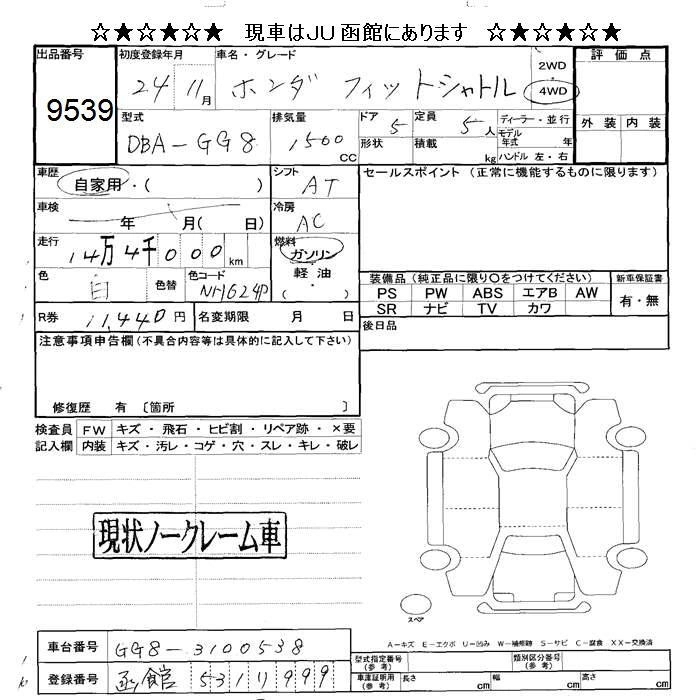 ☆★☆★☆★ 現車はJU函館にあります ☆★☆★☆★
出品番号 9539
初度登録年月 24 11月
車名・グレード ホンダ フィットシャトル
2WD
4WD
評価点
外装 内装
型式 DBA-GG8
排気量 1500 CC
ドア 5
形状
定員 5人
積載 kg
ディーラー・並行
モデル年式 年
ハンドル 左・右
車歴 自家用・( )
シフト AT
セールスポイント (正常に機能するものに限ります)
車検 年 月( 日)
冷房 AC
走行 14万4千000km
燃料 ガソリン
軽油
( ・ )
色 白 色替
色コード NH624P
装備品 (純正品に限り〇をつけてください)
新車保証書
PS PW ABS エアB AW
有・無
SR ナビ TV カワ
R券 11,440円
名変期限 月 日
後日品
注意事項申告欄(不具合内容等は具体的に記入して下さい)
修復歴 有 〔箇所 〕
検査員 FW キズ・飛石・ヒビ割・リペア跡・×要
記入欄 内装 キズ・汚レ・コゲ・穴・スレ・キレ・破レ
現状ノークレーム車
スペア
A-キズ E-エクボ U-凹み W-補修跡 S-サビ C-腐食 XX-交換済
車台番号 GG8-3100538
型式指定番号(参考)
類別区分番号(参考)
登録番号 函館 531り999
車庫証明用(参考) 長さ cm 幅 cm 高さ cm